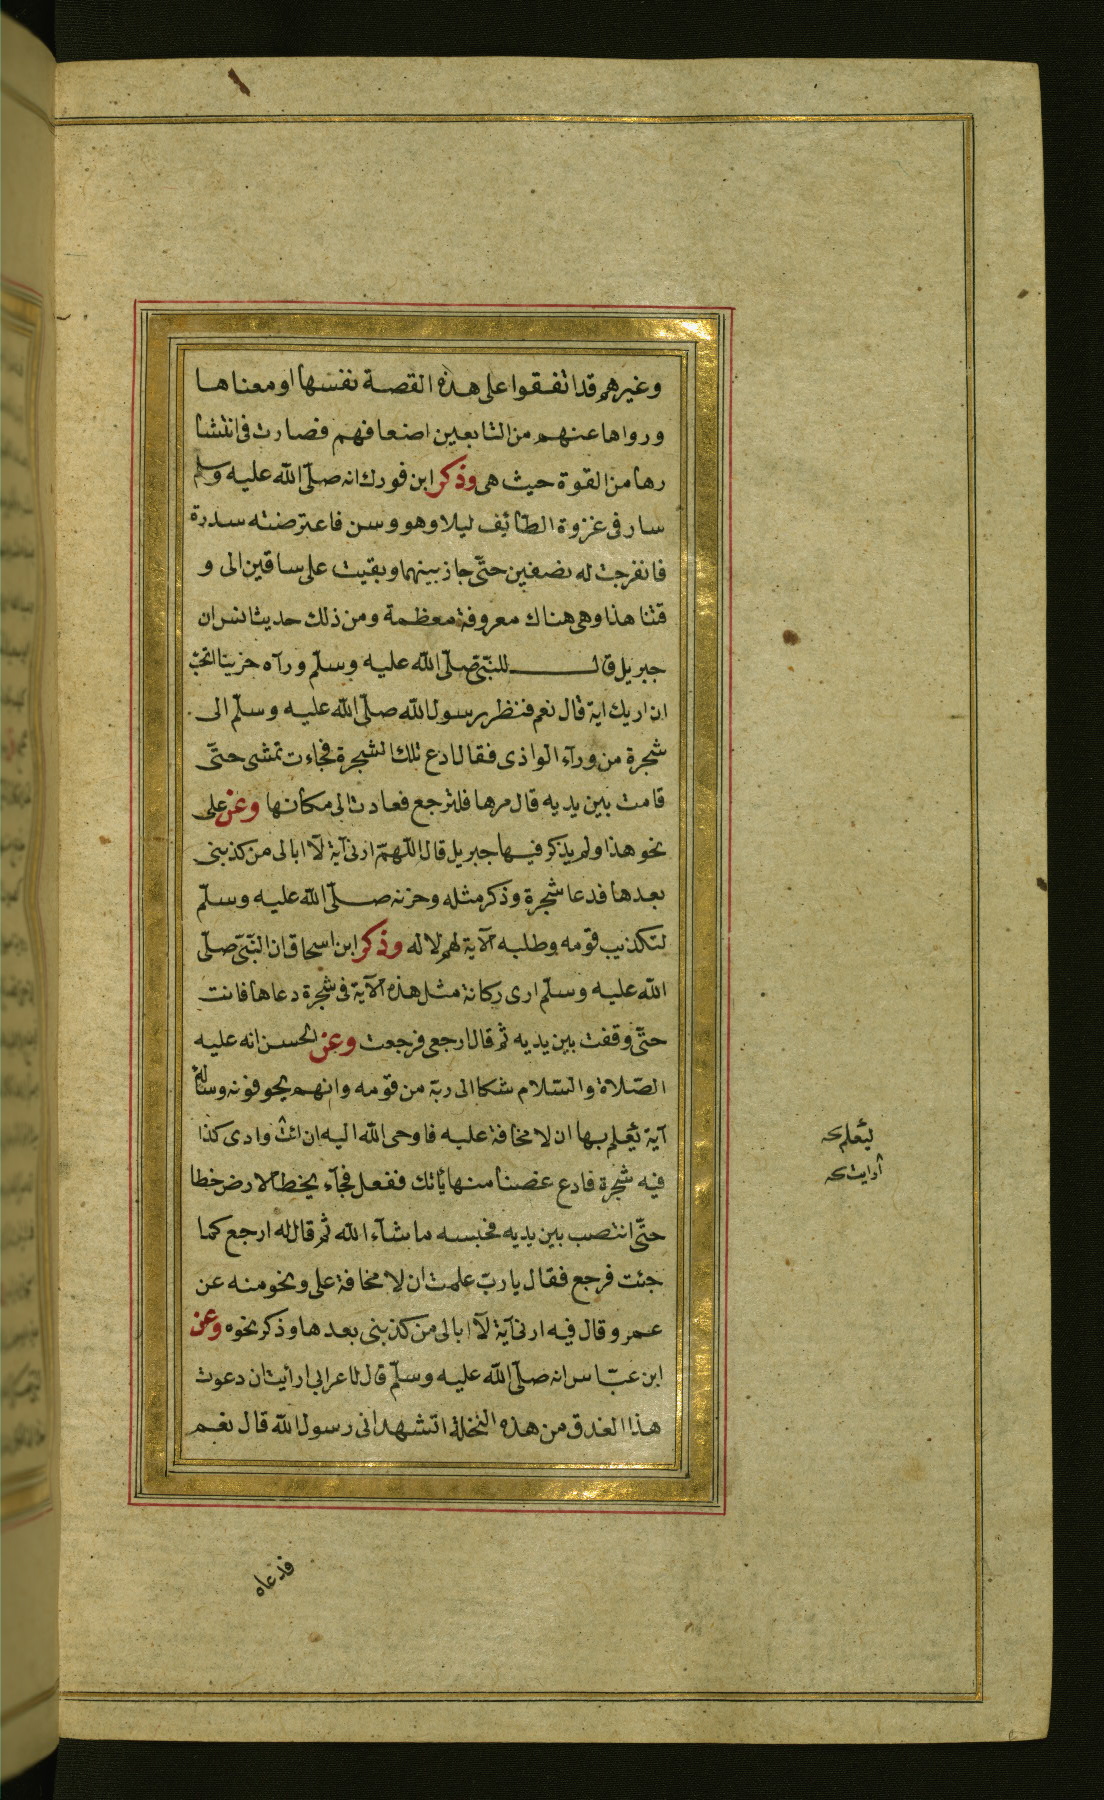 وغيرهم قد اتفقوا على هذه القصة نفسها او معناها
ورواها عنهم من التابعين اضعافهم فصارت فى انتشا
رها من القوة حيث هى وذكر ابن فورك انه صلّى اللّه عليه وسلم
سار فى غزوة الطائف ليلا وهو وسن فاعترضته سدرة
فانفرجت له نصفين حتّى جاز بينهما وبقيت على ساقين الى و
قتنا هذا وهى هناك معروفة معظمة ومن ذلك حديث انس ان
جبريل قال للنّبىّ صلّى اللّه عليه وسلّم ورآه حزينا اتحبّ
ان اريك اية قال نعم فنظر رسول اللّه صلّى اللّه عليه وسلّم الى
شجرة من ورآء الوادى فقال ادع تلك الشجرة فجاءت تمشى حتّى
قامت بين يديه قال مرها فلترجع فعادت الى مكانها وعن على
نحو هذا ولم يذكر فيها جبريل قال اللّهمّ ارنى آية لا ابالى من كذبنى
بعدها فدعا شجرة وذكر مثله وحزنه صلّى اللّه عليه وسلّم
لتكذيب قومه وطلبه الآية لهم لا له وذكر ابن اسحاق ان النّبىّ صلّى
اللّه عليه وسلّم ارى ركانة مثل هذه الآية فى شجرة دعاها فاتت
حتّى وقفت بين يديه ثم قال ارجعى فرجعت وعن الحسن انه عليه
الصّلاة والسّلام شكا الى ربّه من قومه وانهم يخوفونه وسأله
آية يعلم بها ان لا مخافة عليه فاوحى اللّه اليه ان ائت وادى كذا
فيه شجرة فادع غصنا منها يأتك ففعل فجآء يخط الارض خطا
حتّى انتصب بين يديه فحبسه ما شآء اللّه ثم قال له ارجع كما
جئت فرجع فقال يا ربّ علمت ان لا مخافة على ونحو منه عن
عمر وقال فيه ارنى آية لا ابالى من كذبنى بعدها وذكر نحوه وعن
ابن عبّاس انه صلّى اللّه عليه وسلّم قال لاعرابى ارأيت ان دعوت
هذا العذق من هذه النخلة اتشهد انى رسول اللّه قال نعم
ليعلم
أرأيت
فدعاه